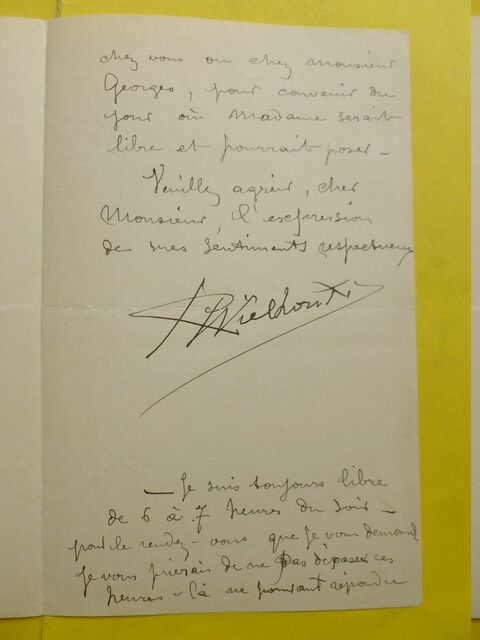 chez vous ou chez Monsieur
Georges, pour convenir du
jour où Madame serait
libre et pourrait poser —
Veuillez agréer, cher
Monsieur l'expression
de mes sentiments respectueux
— Je suis toujours libre
de 6 à 7 heures du soir —
pour le rendez-vous que je vous demande
Je vous prierais de ne pas dépasser ces
heures-là ne pouvant répondre